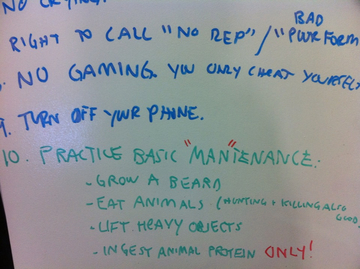 NO CRYING!
RIGHT TO CALL "NO REP" / "BAD PWR FORM
. NO GAMING. YOU ONLY CHEAT YOURSELF
9. TURN OFF YOUR PHONE.
10. PRACTICE BASIC "MAN"TENANCE:
- GROW A BEARD
- EAT ANIMALS (HUNTING + KILLING ALSO GOOD)
- LIFT HEAVY OBJECTS
- INGEST ANIMAL PROTEIN ONLY!